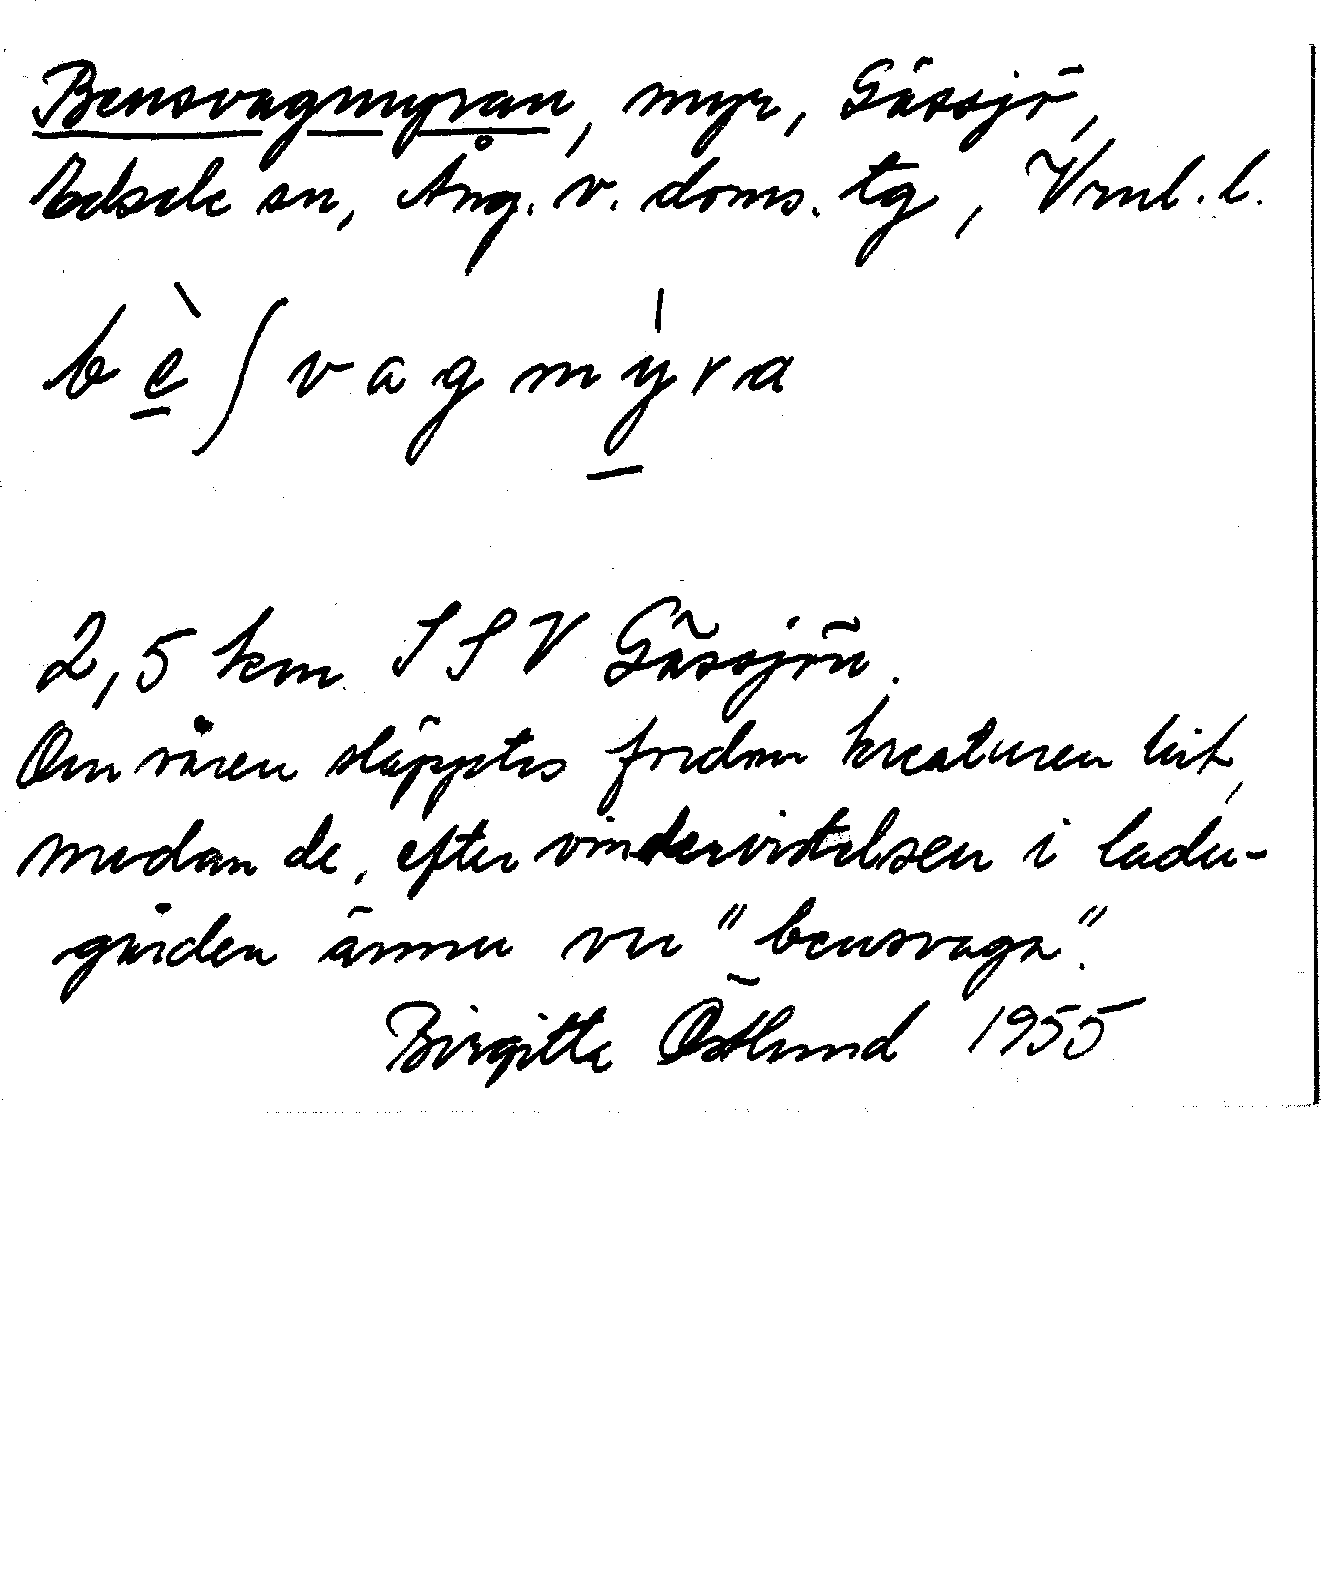 Bensvagmyran, myr, Gässjö,
Edsele sn, Ång. v. doms. tg, Vrnl. l.
bè̱ʃvagmý̱ra
2,5 km SSV Gässjön.
Om våren släpptes fordom kreaturen hit,
medan de, efter vintervistelsen i ladu-
gården ännu vu "bensvaga".
Birgitta Östlund 1955